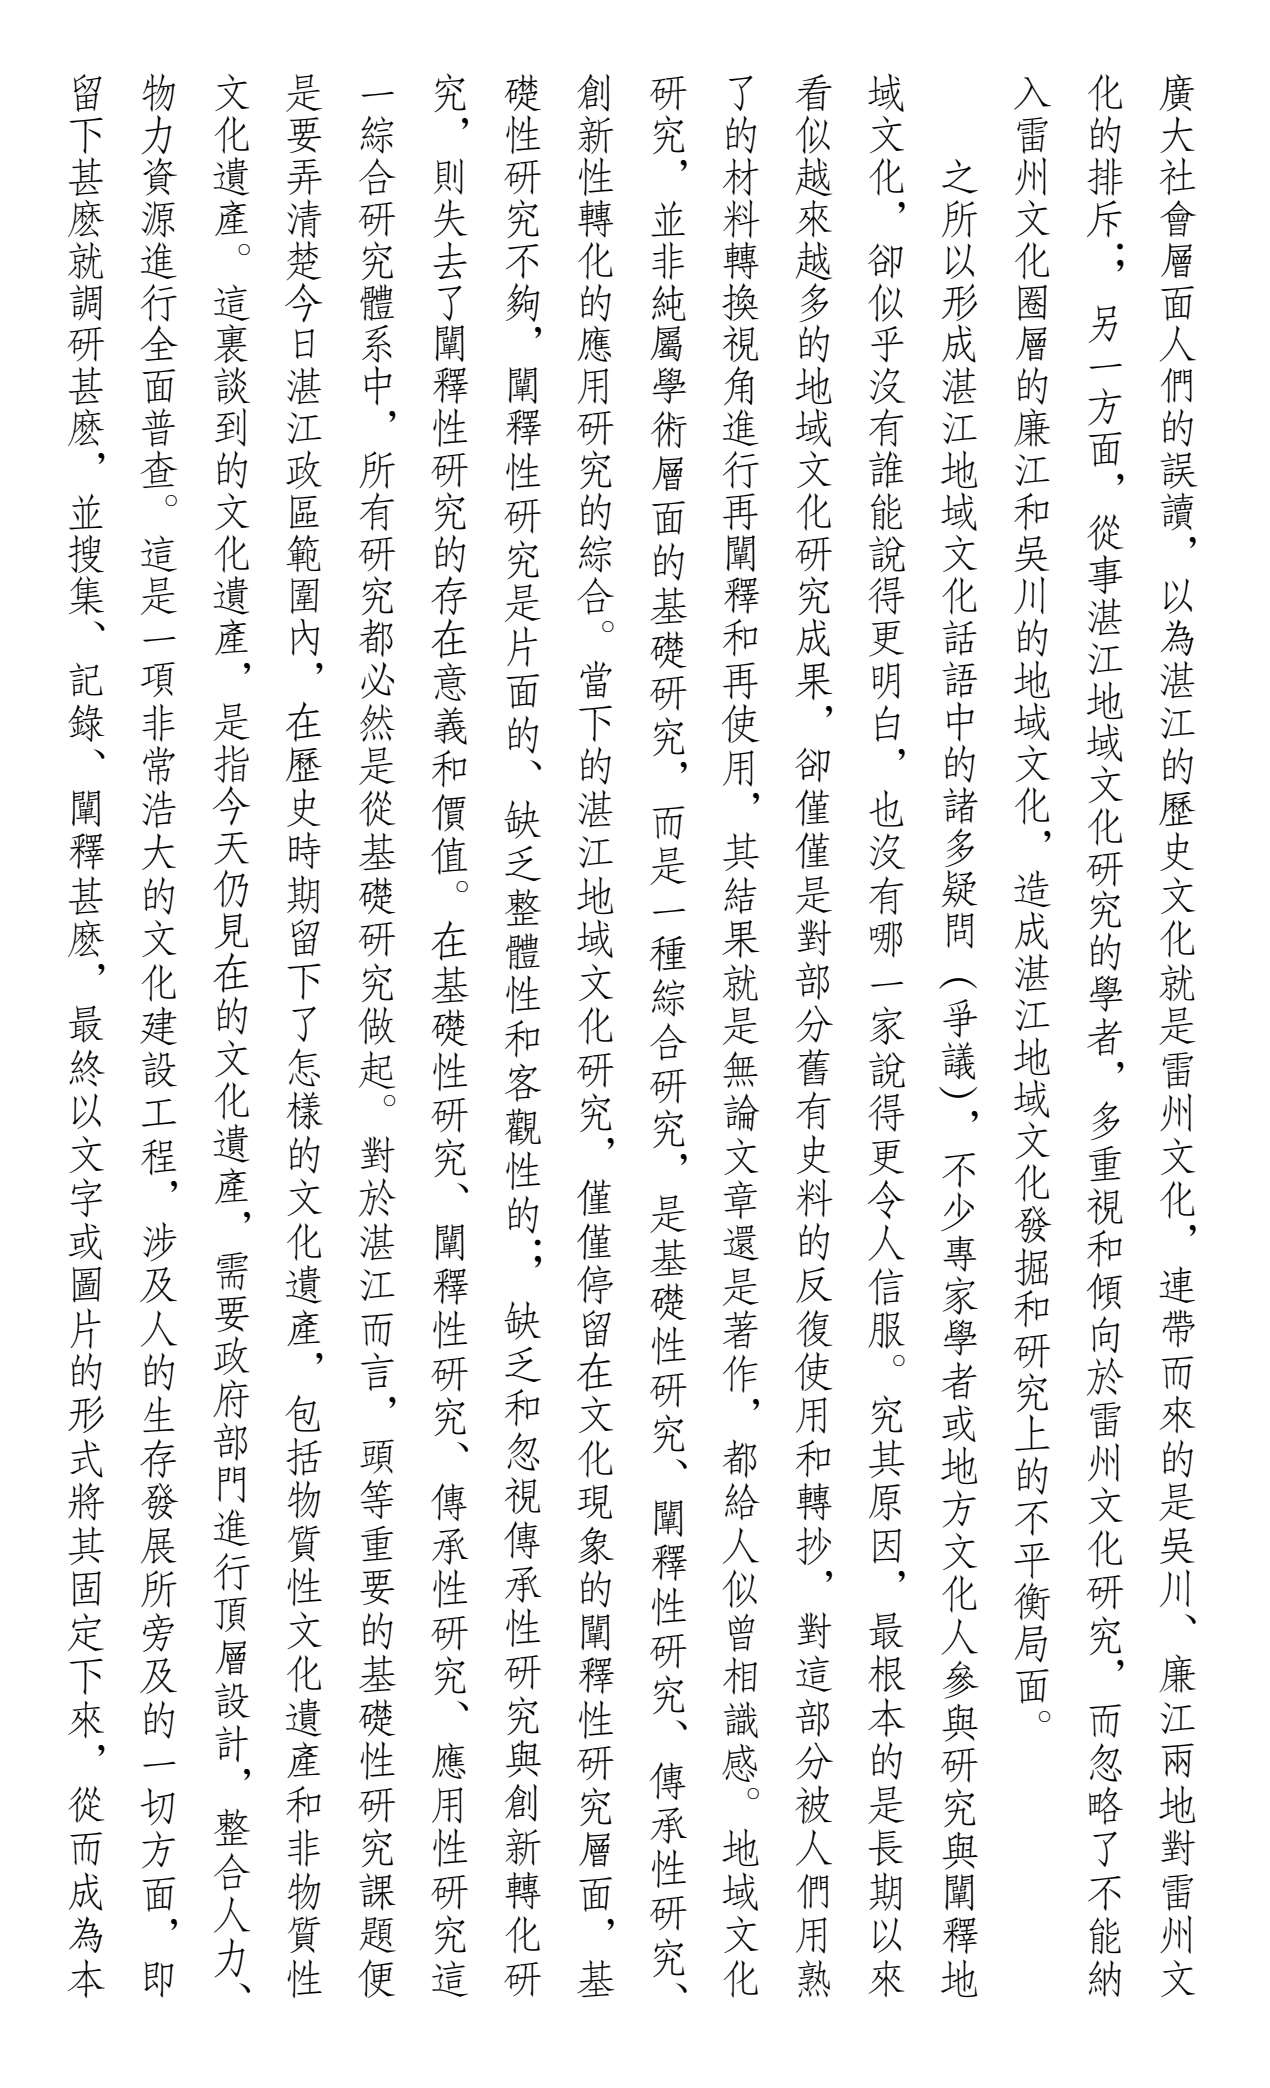 廣大社會層面人們的誤讀，以為湛江的歷史文化就是雷州文化，連帶而來的是吳川、廉江兩地對雷州文
化的排斥；另一方面，從事湛江地域文化研究的學者，多重視和傾向於雷州文化研究，而忽略了不能納
入雷州文化圈層的廉江和吳川的地域文化，造成湛江地域文化發掘和研究上的不平衡局面。
之所以形成湛江地域文化話語中的諸多疑問（爭議），不少專家學者或地方文化人參與研究與闡釋地
域文化，卻似乎沒有誰能說得更明白，也沒有哪一家說得更令人信服。究其原因，最根本的是長期以來
看似越來越多的地域文化研究成果，卻僅僅是對部分舊有史料的反復使用和轉抄，對這部分被人們用熟
了的材料轉換視角進行再闡釋和再使用，其結果就是無論文章還是著作，都給人似曾相識感。地域文化
研究，並非純屬學術層面的基礎研究，而是一種綜合研究，是基礎性研究、闡釋性研究、傳承性研究、
創新性轉化的應用研究的綜合。當下的湛江地域文化研究，僅僅停留在文化現象的闡釋性研究層面，基
礎性研究不夠，闡釋性研究是片面的、缺乏整體性和客觀性的；缺乏和忽視傳承性研究與創新轉化研
究，則失去了闡釋性研究的存在意義和價值。在基礎性研究、闡釋性研究、傳承性研究、應用性研究這
一綜合研究體系中，所有研究都必然是從基礎研究做起。對於湛江而言，頭等重要的基礎性研究課題便
是要弄清楚今日湛江政區範圍內，在歷史時期留下了怎樣的文化遺產，包括物質性文化遺產和非物質性
文化遺產。這裏談到的文化遺產，是指今天仍見在的文化遺產，需要政府部門進行頂層設計，整合人力、
物力資源進行全面普查。這是一項非常浩大的文化建設工程，涉及人的生存發展所旁及的一切方面，即
留下甚麽就調研甚麽，並搜集、記錄、闡釋甚麽，最終以文字或圖片的形式將其固定下來，從而成為本